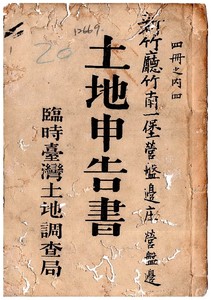 四冊之内四
新竹廳竹南一堡營盤邊庄營盤邊
土地申告書
臨時臺灣土地調查局
20
12669